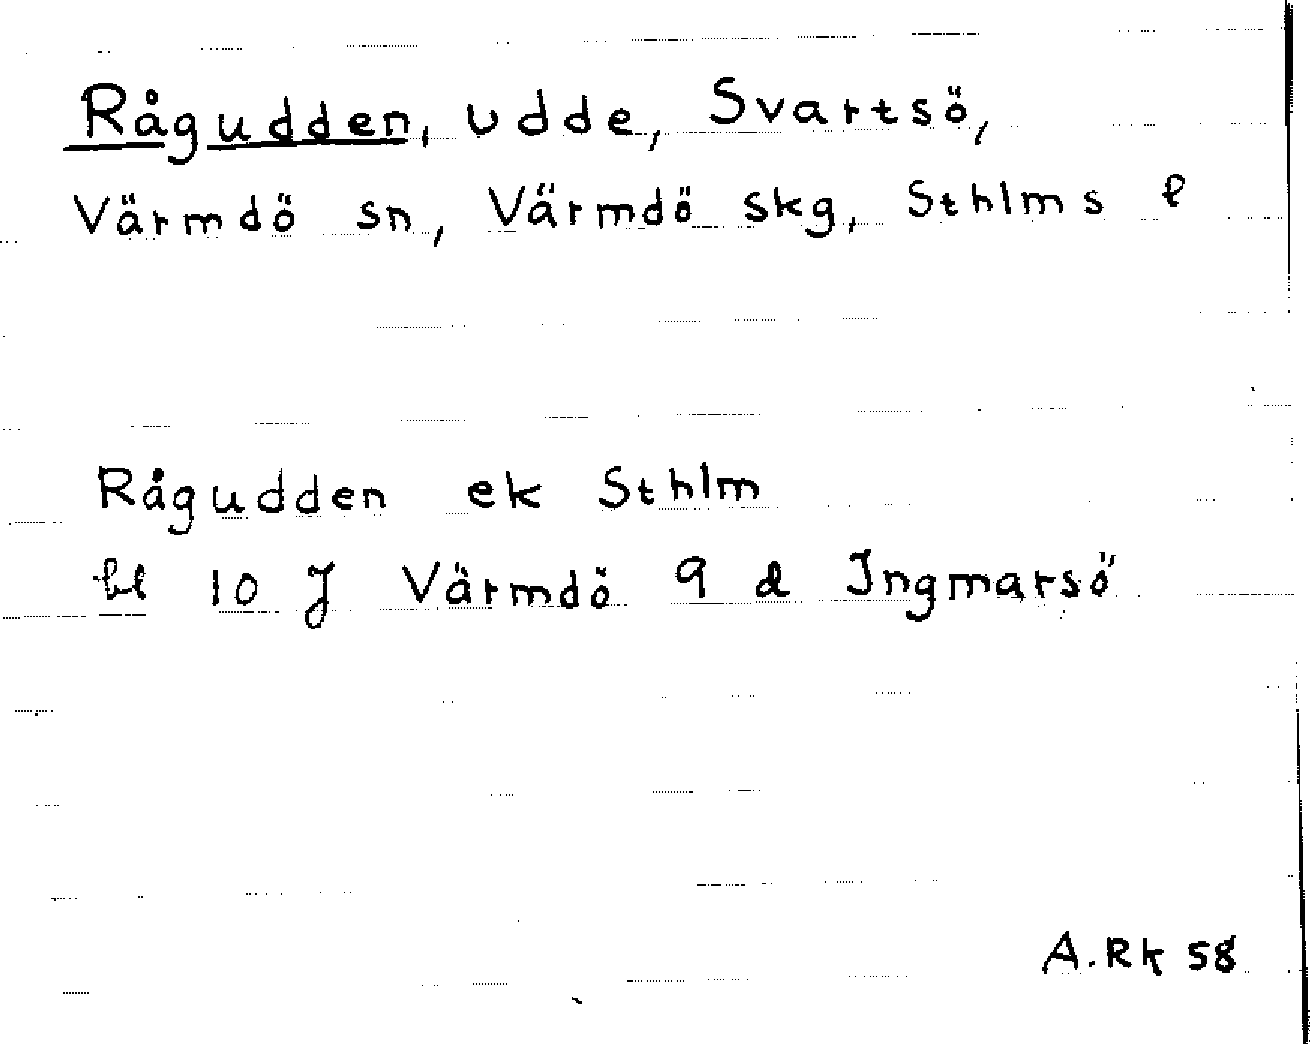 Rågudden, udde, Svartsö,
Värmdö sn, Värmdö skg, Sthlms l
Rågudden ek Sthlm
bl 10 J Värmdö 9 d Ingmarsö
A. Rk 58